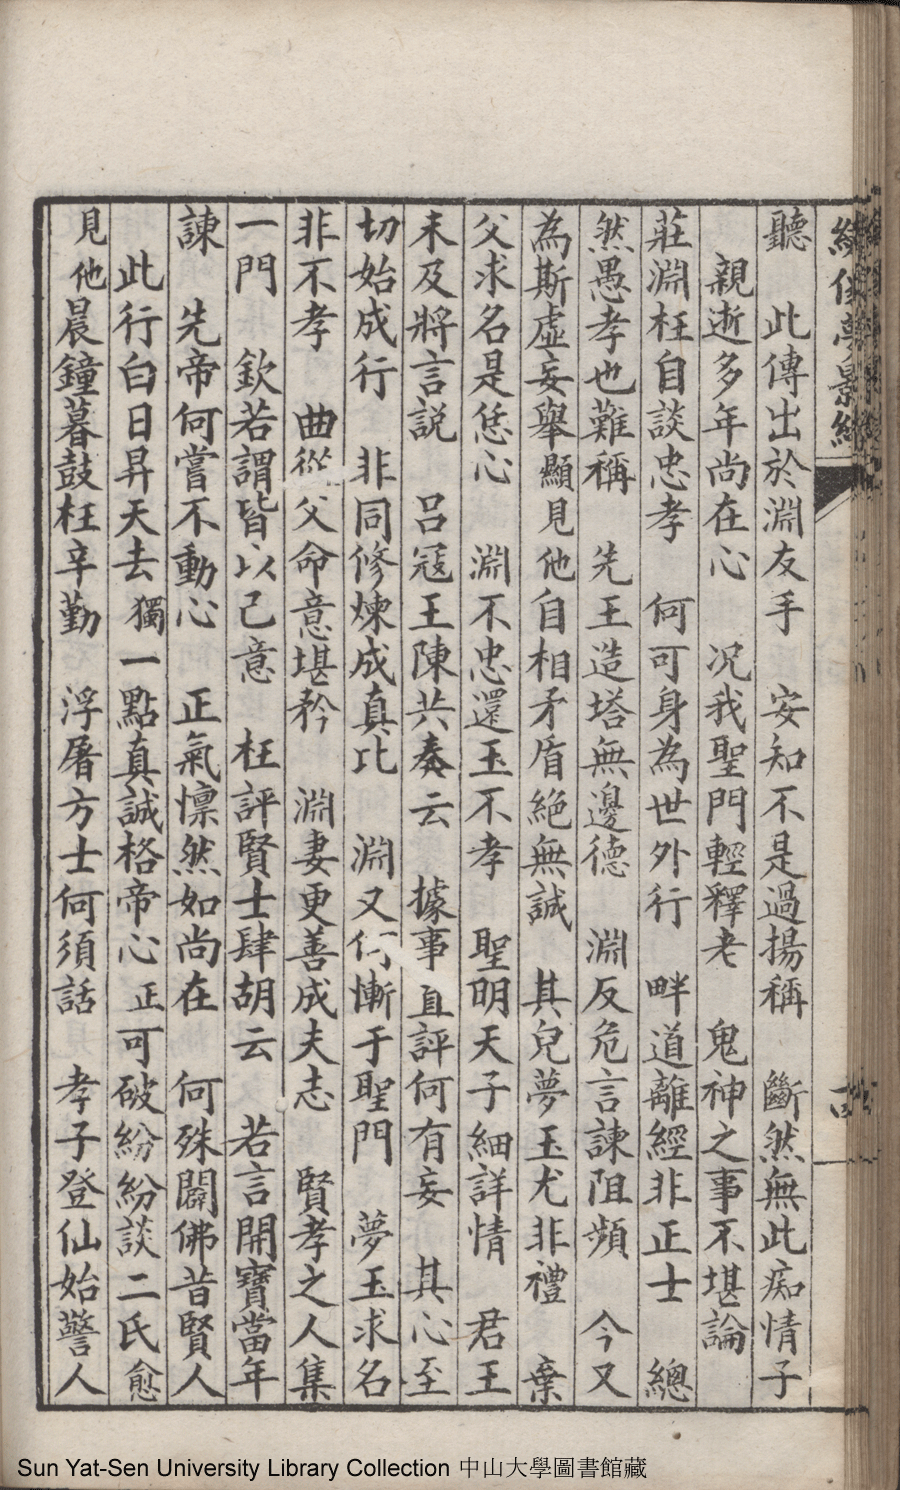 聽　此傳出於淵友手　安知不是過揚稱　斷然無此痴情子
親逝多年尚在心　況我聖門輕釋老　鬼神之事不堪論
莊淵枉自談忠孝　何可身為世外行　畔道離經非正士　總
然愚孝也難稱　先王造塔無邊德　淵反危言諫阻頻　今又
為斯虛妄舉　顯見他自相矛盾絕無誠　其兒夢玉尤非禮　棄
父求名是恁心　淵不忠還玉不孝　聖明天子細詳情　君王
未及將言說　呂寇王陳共奏云　據事直評何有妄　其心至
切始成行　非同修煉成真比　淵又何慚于聖門　夢玉求名
非不孝　曲從父命意堪矜　淵妻更善成夫志　賢孝之人集
一門　欽若謂皆以己意　枉評賢士肆胡云　若言開寶當年
諫　先帝何嘗不動心　正氣懍然如尚在　何殊闢佛昔賢人
此行白日昇天去　獨一點真誠格帝心　正可破紛紛談二氏　愈
見他晨鐘暮鼓枉辛勤　浮屠方士何須話　孝子登仙始警人
Sun Yat-Sen University Library Collection 中山大學圖書館藏